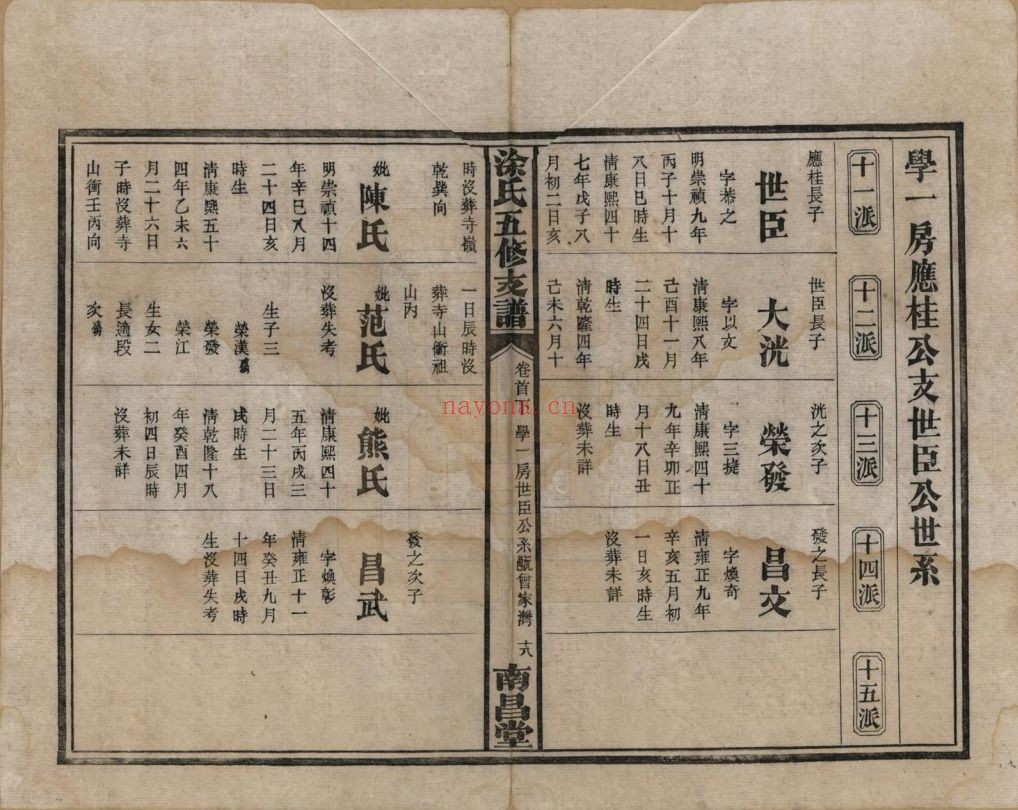 學一房應桂公支世臣公世系
十一派
十二派
十三派
十四派
十五派
應桂長子
世臣
字恭之
明崇禎九年
丙子十月十
八日巳時生
清康熙四十
七年戊子八
月初二日亥
時沒葬寺嶺
乾巽向
妣陳氏
明崇禎十四
年辛巳八月
二十四日亥
時生
清康熙五十
四年乙未六
月二十六日
子時沒葬寺
山衝壬丙向
世臣長子
大洸
字以文
清康熙八年
己酉十一月
二十四日戌
時生
清乾隆四年
己未六月十
一日辰時沒
葬寺山衝祖
山內
妣范氏
沒葬失考
生子三
榮漢殤
榮發
榮江
生女二
長適段
次殤
洸之次子
榮發
字三捷
清康熙四十
九年辛卯正
月十八日丑
時生
沒葬未詳
妣熊氏
清康熙四十
五年丙戌三
月二十三日
戌時生
清乾隆十八
年癸酉四月
初四日辰時
沒葬未詳
發之長子
昌文
字煥奇
清雍正九年
辛亥五月初
一日亥時生
沒葬未詳
發之次子
昌武
字煥彰
清雍正十一
年癸丑九月
十四日戌時
生沒葬失考
涂氏五修支譜
卷首下 學一房世臣公系 曾家灣 十八
南昌堂
nayona.cn